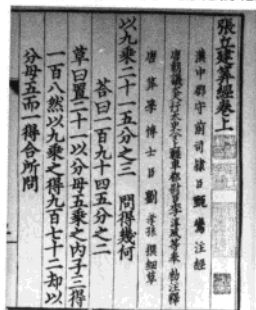 張丘建算經卷上
漢中郡守前司隸臣甄鸞注經
唐朝議大夫行太史令上輕車都尉臣李淳風等奉勅注釋
唐算學博士臣劉孝孫撰細草
以九乘二十一五分之三 問得幾何
荅曰一百九十四五分之二
草曰置二十一以分母五乘之內子三得
一百八然以九乘之得九百七十二却以
分母五而一得合所問